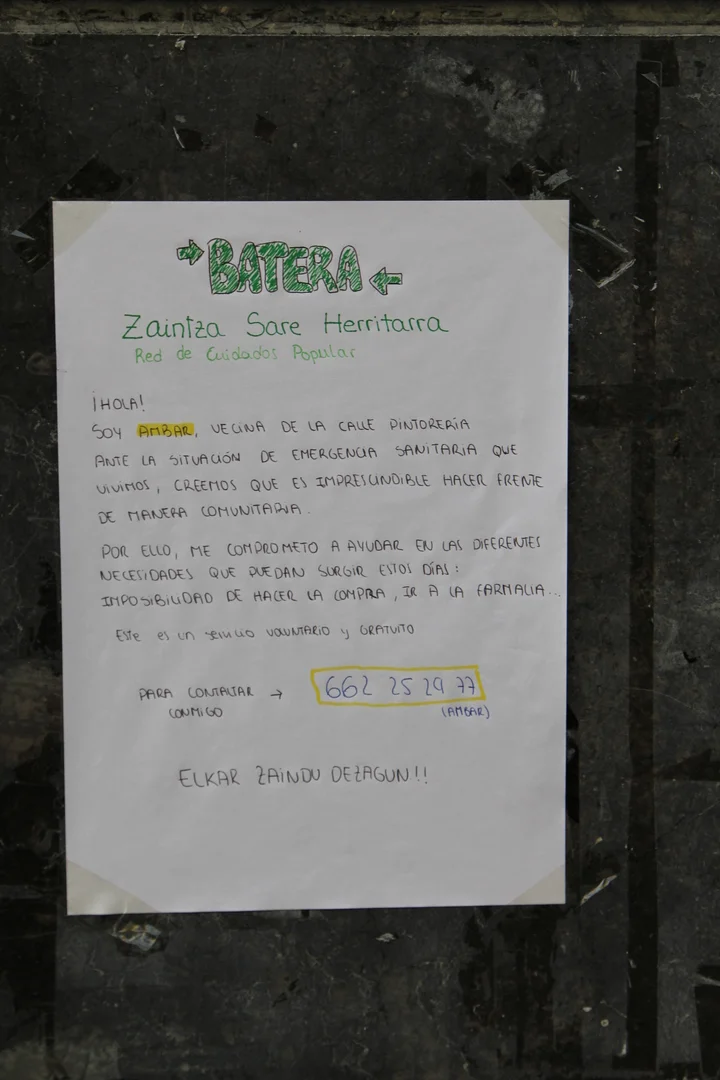 → BATERA ←
Zaintza Sare Herritarra
Red de Cuidados Popular
¡HOLA!
SOY AMBAR, VECINA DE LA CALLE PINTORERÍA
ANTE LA SITUACIÓN DE EMERGENCIA SANITARIA QUE
VIVIMOS, CREEMOS QUE ES IMPRESCINDIBLE HACER FRENTE
DE MANERA COMUNITARIA.
POR ELLO, ME COMPROMETO A AYUDAR EN LAS DIFERENTES
NECESIDADES QUE PUEDAN SURGIR ESTOS DÍAS:
IMPOSIBILIDAD DE HACER LA COMPRA, IR A LA FARMACIA...
Este es un servicio VOLUNTARIO y GRATUITO
PARA CONTACTAR → 662 25 29 77
CONMIGO (AMBAR)
ELKAR ZAINDU DEZAGUN!!